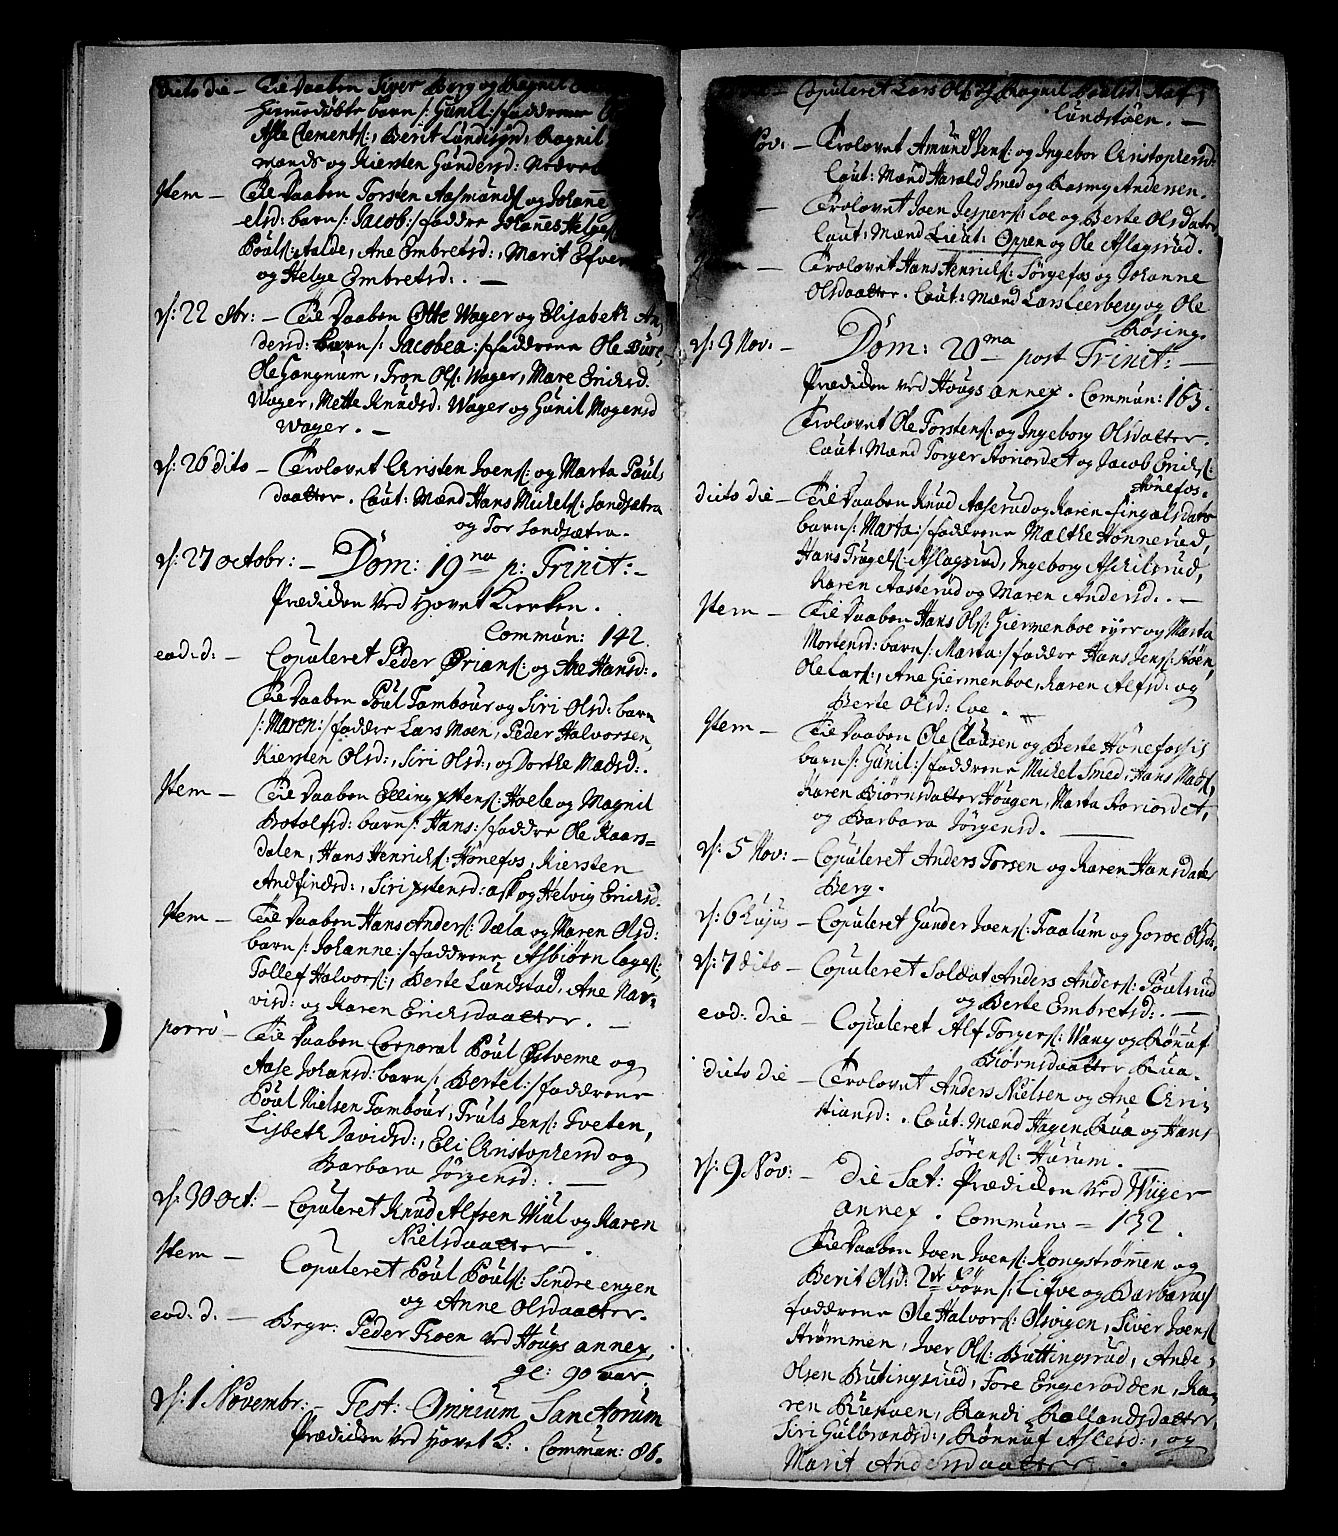 dicto die – Til Daaben Siver Berg og Ragnil
hiemmedøbte barn /: Gunil :/ faddrene
Asle Clements:, Berit Lundisøn, Ragnil
mands og Kiersten Gunders d:
Item – Til Daaben Torsten Aasmunds: og Johanne
elsd: barn /: Jacob :/ faddre Johannes Helges:
Pouls: Aalde, Ane Embretsd:, Marit
og Helge Embretsd: . –
d: 22 8br: – Til Daaben Otte Wager og Elisabeth An,
dersd: barn /: Jacobea :/ faddrene Ole Dure,
Ole Gangnum, Tron Ols: Wager, Mare Ericksd.
Wager, Mette Knudsd: Wager og Gunil Mogensd
Wager. –
d: 26 dito – Trolovet Cristen Ivers: og Marta Pouls
daatter. Caut: Mænd Hans Mickels: Sandsætra
og Tor Sandsætra.
d: 27 octobr: – Dom: 19na p: Trinit: –
Prædicken ved Hovet Kircken.
Commun: 142.
eod: d: – Copuleret Peder Ørians: og Ane Hansd: .
Til Daaben Poul Tambour og Siri Olsd: barn
/: Maren :/ faddre Lars Moen, Peder Halvorsen,
Kiersten Olsd:, Siri Olsd:, og Dorthe Madsd: .
Item – Til Daaben Elling Xstens: Hoele og Magnil
Botolfsd: barn /: Hans :/ faddre Ole Kaars=
dalen, Hans Henricks: Hønefos, Kiersten
Andfindsd:, Siri Xstensd: Ask og Helvig Ericksd.
Item – Til Daaben Hans Anders: Dæla og Maren Olsd:
barn /: Johanne :/ faddrene Asbiørn Lages:,
Tollef Halvors:, Berte Lundstad, Ane Nar=
visd: og Karen Ericksdaatter. –
porro – Til Daaben Corporal Poul Østveme og
Aase Johansd: barn /: Bertel :/ faddrene
Poul Nielsen Tambour, Truls Jens: Tveten,
Lisbeth Davidsd:, Eli Christophersd og
Barbara Jørgensd: . –
d: 30 Oct: – Copuleret Knud Alfsen Wiul og Karen
Nielsdaatter.
Item – Copuleret Poul Pouls: Sindre engen
og Anne Olsdaatter.
eod: d. – Begr: Peder Troen ved Hougs annex,
gl: 90 aar.
d: 1 Novembr: – Fest: Omnium Sanctorum
Prædicken ved Hovet K: . Commun: 86.
Copuleret Lars Ols: og Ragnil
Lundstøen. –
Nov: – Trolovet Amund Jens: og Ingebor Christophersd:
Caut: Mænd Harald Smed og Rasmus Andersen.
– Trolovet Iver Jespers: Loe og Berte Olsdater
Caut: Mænd Lieut: Oppen og Ole Aslagsrud.
– Trolovet Hans Henricks: Sørgefos og Johanne
Olsdaatter. Caut: Mænd Lars Leerberg og Ole
Røsing.
d: 3 Nov: – Dom: 20ma post Trinit: –
Prædicken ved Hougs annex. Commun: 163.
Trolovet Ole Torstens: og Ingeborg Olsdatter.
Caut: Mænd Torger Storiordet og Jacob Ericks:
Hønefos.
dicto die – Til Daaben Knud Aaserud og Karen Fingalsdatr
barn /: Marta :/ faddrene Malthe Hønnerud,
Hans Trugels: Aslagsrud, Ingeborg Askilsrud,
Karen Aasterud og Maren Andersd: . –
Item – Til Daaben Hans Ols: Giermenboe eyer og Marta
Mortensd: barn /: Marta :/ faddre Hans Jens: Støen,
Ole Lars:, Ane Giermenboe, Karen Alfsd: og
Berte Olsd: Loe.
Item – Til Daaben Ole Clausen og Berte Hønefossis
barn /: Gunil :/ faddrene Mickel Smed, Hans Mads:,
Karen Biørnsdatter Hougen, Marta Storiordet,
og Barbara Jørgensd.
d: 5 Nov: – Copuleret Anders Torsen og Karen Hansdater
Berg.
d: 6 hujus – Copuleret Gunder Ivers: Traalum og Goroe Olsd:
d: 7 dito – Copuleret Soldat Anders Anders: Poulsrud
og Berte Embretsd: . –
eod: die – Copuleret Alf Torgers: Wang og Rønnuf
Biørnsdaatter Rua.
dicto die – Trolovet Anders Nielsen og Ane Chri,
stiansd: . Caut: Mænd Hagen Rua og Hans
Sørens: Harum.
d: 9 Nov: – die Sat: Prædicken ved Wiiger
annex. Commun: – 132.
Til Daaben Iver Ivers: Kongstrømmen og
Berit Olsd: 2de børn /: Lisve og Barbara :/
faddrene Ole Halvors: Olsvigen, Siver Ivers:
Strømmen, Iver Ols: Buttingsrud, Ande,
Olsen Butingsrud, Tore Engerødden, Ka,
ren Rustoen, Randi Rollandsdatter,
Siri Gulbrandsd:, Rønnuf Aslesd:, og
Marit Andersdaatter.